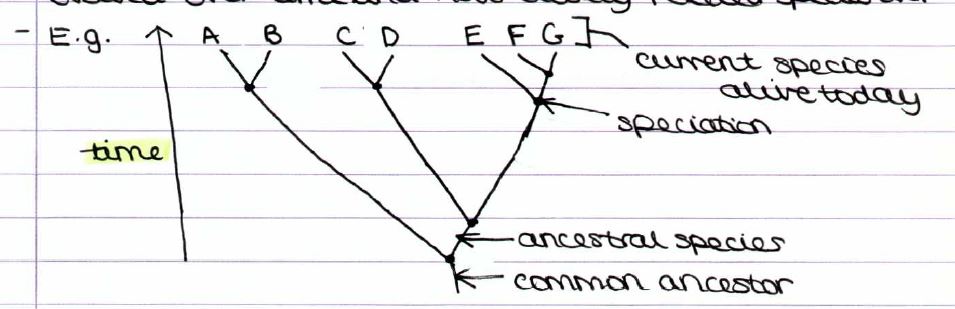 - E.g. A B C D E F G
current species
alive today
speciation
time
ancestral species
common ancestor